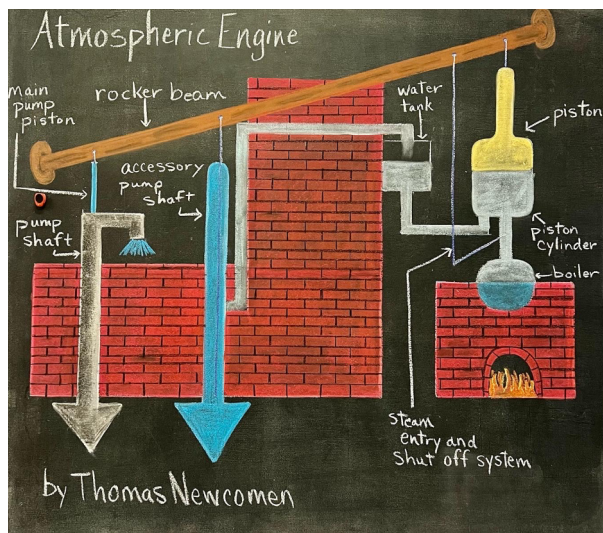 Atmospheric Engine
main
pump
piston
rocker beam
water
tank
piston
accessory
pump
shaft
pump
shaft
piston
cylinder
boiler
steam
entry and
shut off system
by Thomas Newcomen